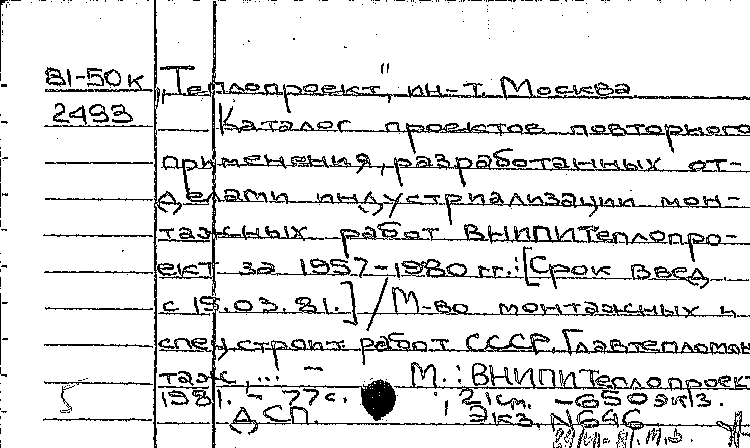 81-50к „Теплопроект", ин-т. Москва
2493 Каталог проектов повторного
применения, разработанных от-
делами индустриализации мон-
тажных работ ВНИПИТеплопро-
ект за 1957-1980 гг.: [Срок введ
с 15.03.81.] / М-во монтажных и
спец. строит. работ СССР. Главтепломон
таж,... - М.: ВНИПИТеплопроект
1981. - 77с. ; 21см. - 650экз.
ДСП. Экз. N646
5